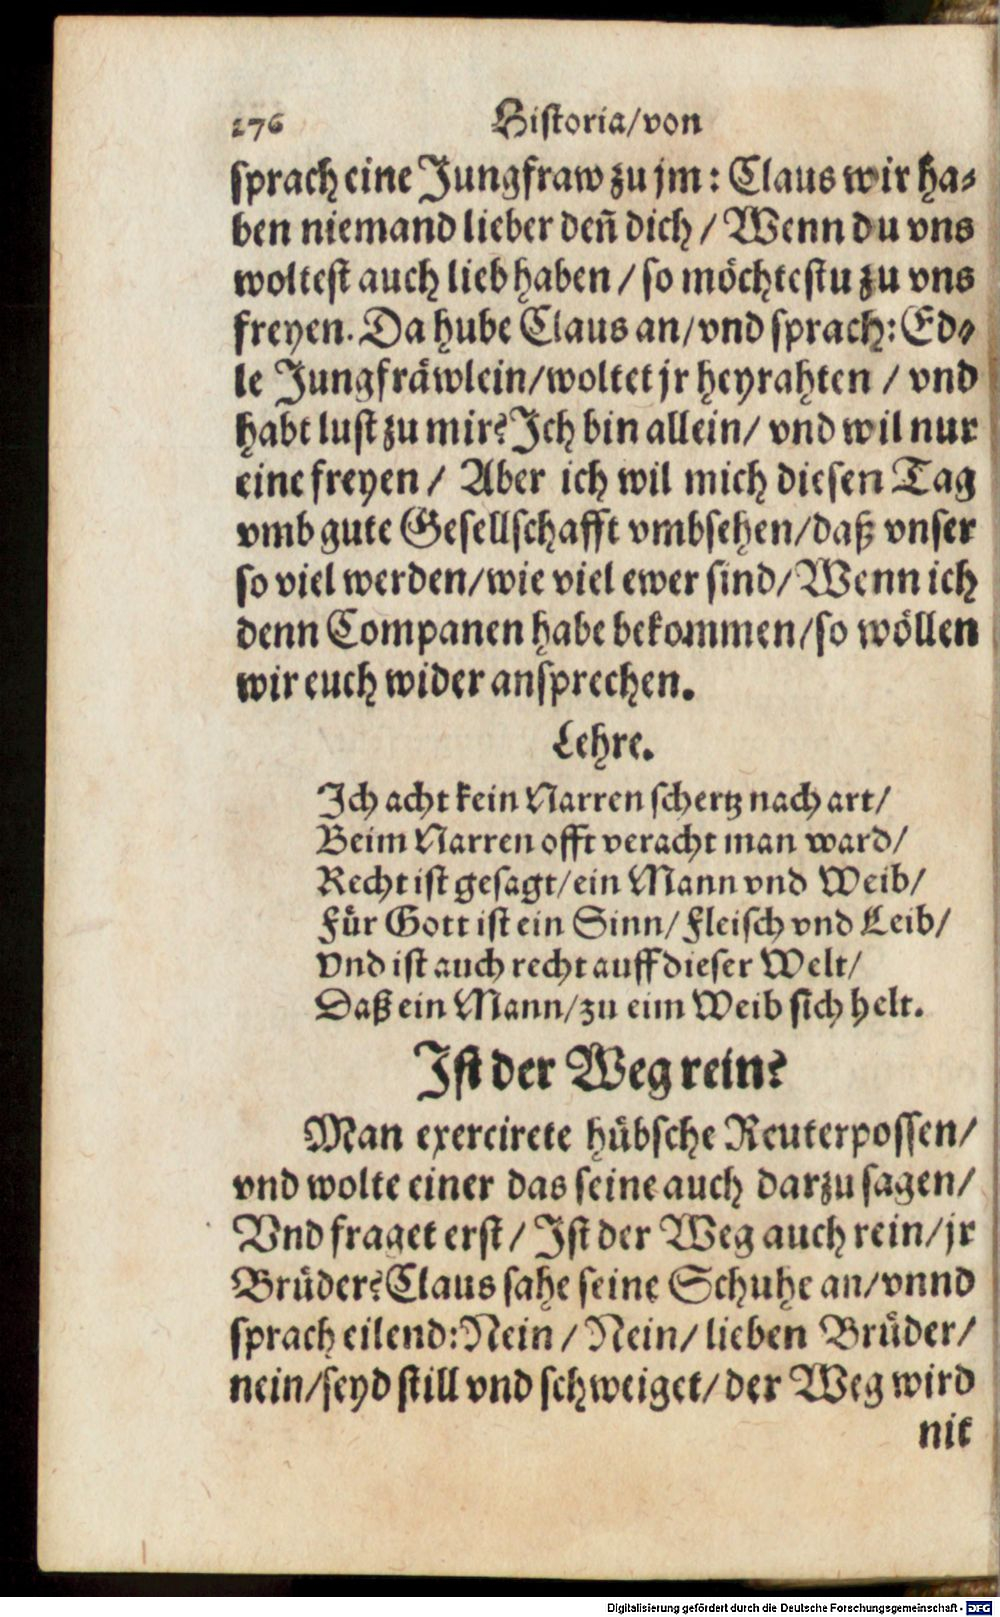 276 Historia/von
sprach eine Jungfraw zu jm: Claus wir ha-
ben niemand lieber deñ dich / Wenn du vns
woltest auch lieb haben / so möchtestu zu vns
freyen. Da hube Claus an/vnd sprach: Ed-
le Jungfräwlein/woltet jr heyrahten / vnd
habt lust zu mir? Ich bin allein/ vnd wil nur
eine freyen / Aber ich wil mich diesen Tag
vmb gute Gesellschafft vmbsehen/daß vnser
so viel werden/wie viel ewer sind/Wenn ich
denn Companen habe bekommen/so wöllen
wir euch wider ansprechen.
Lehre.
Ich acht kein Narren schertz nach art/
Beim Narren offt veracht man ward/
Recht ist gesagt/ein Mann vnd Weib/
Für Gott ist ein Sinn/Fleisch vnd Leib/
Vnd ist auch recht auff dieser Welt/
Daß ein Mann/zu eim Weib sich helt.
Ist der Weg rein?
Man exercirete hübsche Reuterpossen/
vnd wolte einer das seine auch darzu sagen/
Vnd fraget erst / Ist der Weg auch rein/jr
Brüder? Claus sahe seine Schuhe an/vnnd
sprach eilend: Nein / Nein/ lieben Brüder/
nein/seyd still vnd schweiget/der Weg wird
nit
Digitalisierung gefördert durch die Deutsche Forschungsgemeinschaft - DFG